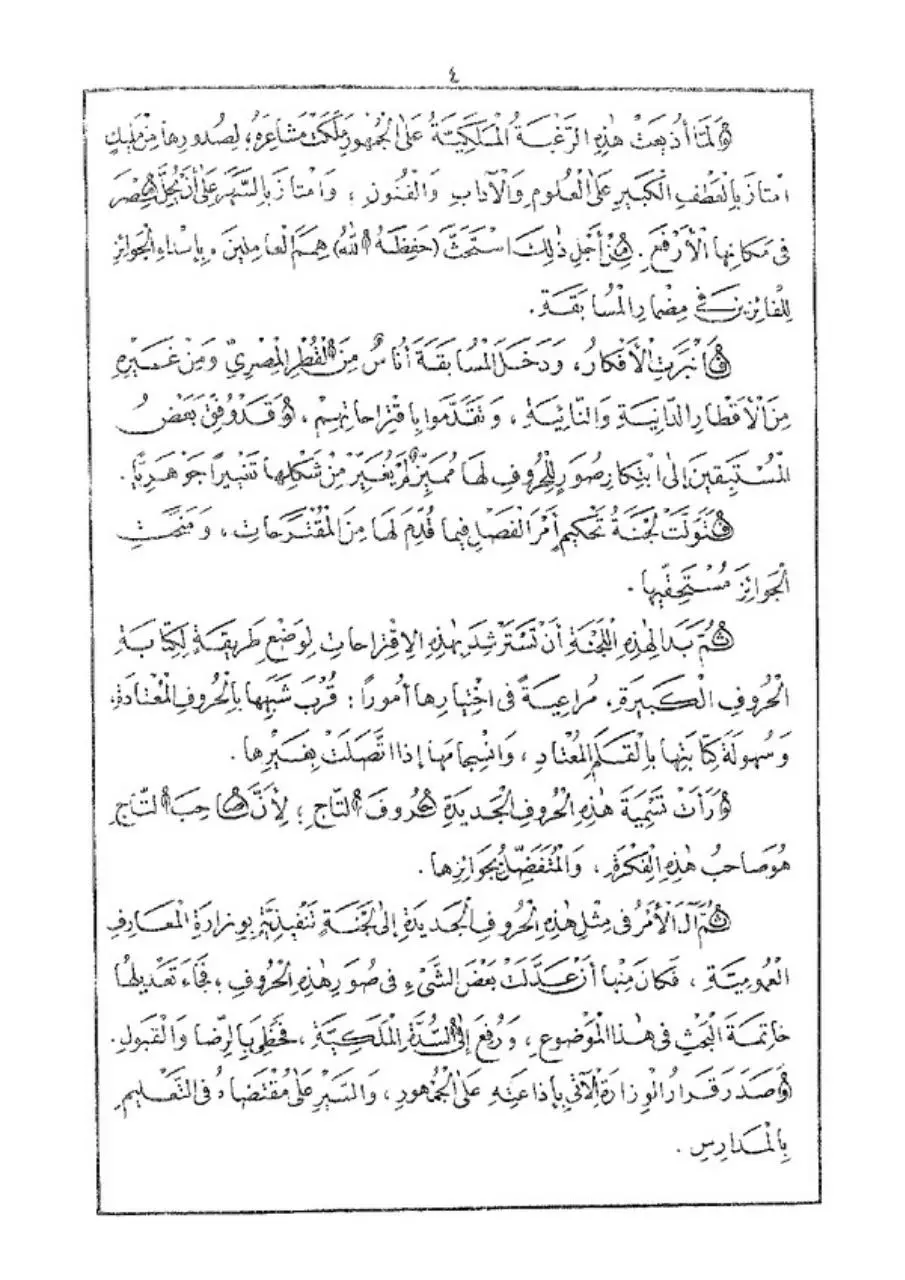 ٤
وَلَمَّا أُذِيعَتْ هٰذِهِ الرَّغْبَةُ الْمَلَكِيَّةُ عَلَى الْجُمْهُورِ مَلَكَتْ مَشَاعِرَهُ؛ لِصُدُورِهَا مِنْ مَلِيكٍ
امْتَازَ بِالْعَطْفِ الْكَبِيرِ عَلَى الْعُلُومِ وَالْآدَابِ وَالْفُنُونِ، وَامْتَازَ بِالسَّهَرِ عَلَى أَنْ يُحِلَّ مِصْرَ
فِى مَكَانِهَا الْأَرْفَعِ. مِنْ أَجْلِ ذٰلِكَ اسْتَحَثَّ (حَفِظَهُ اللّٰهُ) هِمَمَ الْعَامِلِينَ، بِإِسْدَاءِ الْجَوَائِزِ
لِلْفَائِزِينَ فِى مِضْمَارِ الْمُسَابَقَةِ.
فَانْبَرَتِ الْأَفْكَارُ، وَدَخَلَ الْمُسَابَقَةَ أُنَاسٌ مِنَ الْقُطْرِ الْمِصْرِيِّ وَمِنْ غَيْرِهِ
مِنَ الْأَقْطَارِ الدَّانِيَةِ وَالنَّائِيَةِ، وَتَقَدَّمُوا بِاقْتِرَاحَاتِهِمْ، وَقَدْ وُفِّقَ بَعْضُ
الْمُسْتَبِقِينَ إِلَى ابْتِكَارِ صُوَرٍ لِلْحُرُوفِ لَهَا مُمَيِّزٌ لَمْ يُغَيِّرْ مِنْ شَكْلِهَا تَغْيِيرًا جَوْهَرِيًّا.
فَتَوَلَّتْ لَجْنَةُ تَحْكِيمٍ أَمْرَ الْفَصْلِ فِيمَا قُدِّمَ لَهَا مِنَ الْمُقْتَرَحَاتِ، وَمَنَحَتِ
الْجَوَائِزَ مُسْتَحِقِّيهَا.
ثُمَّ بَدَا لِهٰذِهِ اللَّجْنَةِ أَنْ تَسْتَرْشِدَ بِهٰذِهِ الِاقْتِرَاحَاتِ لِوَضْعِ طَرِيقَةٍ لِكِتَابَةِ
الْحُرُوفِ الْكَبِيرَةِ، مُرَاعِيَةً فِى اخْتِيَارِهَا أُمُورًا: قُرْبَ شَبَهِهَا بِالْحُرُوفِ الْمُعْتَادَةِ،
وَسُهُولَةَ كِتَابَتِهَا بِالْقَلَمِ الْمُعْتَادِ، وَانْسِجَامَهَا إِذَا اتَّصَلَتْ بِغَيْرِهَا.
وَرَأَتْ تَسْمِيَةَ هٰذِهِ الْحُرُوفِ الْجَدِيدَةِ حُرُوفَ التَّاجِ؛ لِأَنَّ صَاحِبَ التَّاجِ
هُوَ صَاحِبُ هٰذِهِ الْفِكْرَةِ، وَالْمُتَفَضِّلُ بِجَوَائِزِهَا.
ثُمَّ آلَ الْأَمْرُ فِى مِثْلِ هٰذِهِ الْحُرُوفِ الْجَدِيدَةِ إِلَى لَجْنَةٍ تَنْفِيذِيَّةٍ بِوِزَارَةِ الْمَعَارِفِ
الْعُمُومِيَّةِ، فَكَانَ مِنْهَا أَنْ عَدَّلَتْ بَعْضَ الشَّىْءِ فِى صُوَرِ هٰذِهِ الْحُرُوفِ؛ فَجَاءَ تَعْدِيلُهَا
خَاتِمَةَ الْبَحْثِ فِى هٰذَا الْمَوْضُوعِ، وَرُفِعَ إِلَى السُّدَّةِ الْمَلَكِيَّةِ، فَحَظِىَ بِالرِّضَا وَالْقَبُولِ.
وَصَدَرَ قَرَارُ الْوِزَارَةِ الْآتِى بِإِذَاعَتِهِ عَلَى الْجُمْهُورِ، وَالسَّيْرِ عَلَى مُقْتَضَاهُ فِى التَّعْلِيمِ
بِالْمَدَارِسِ.